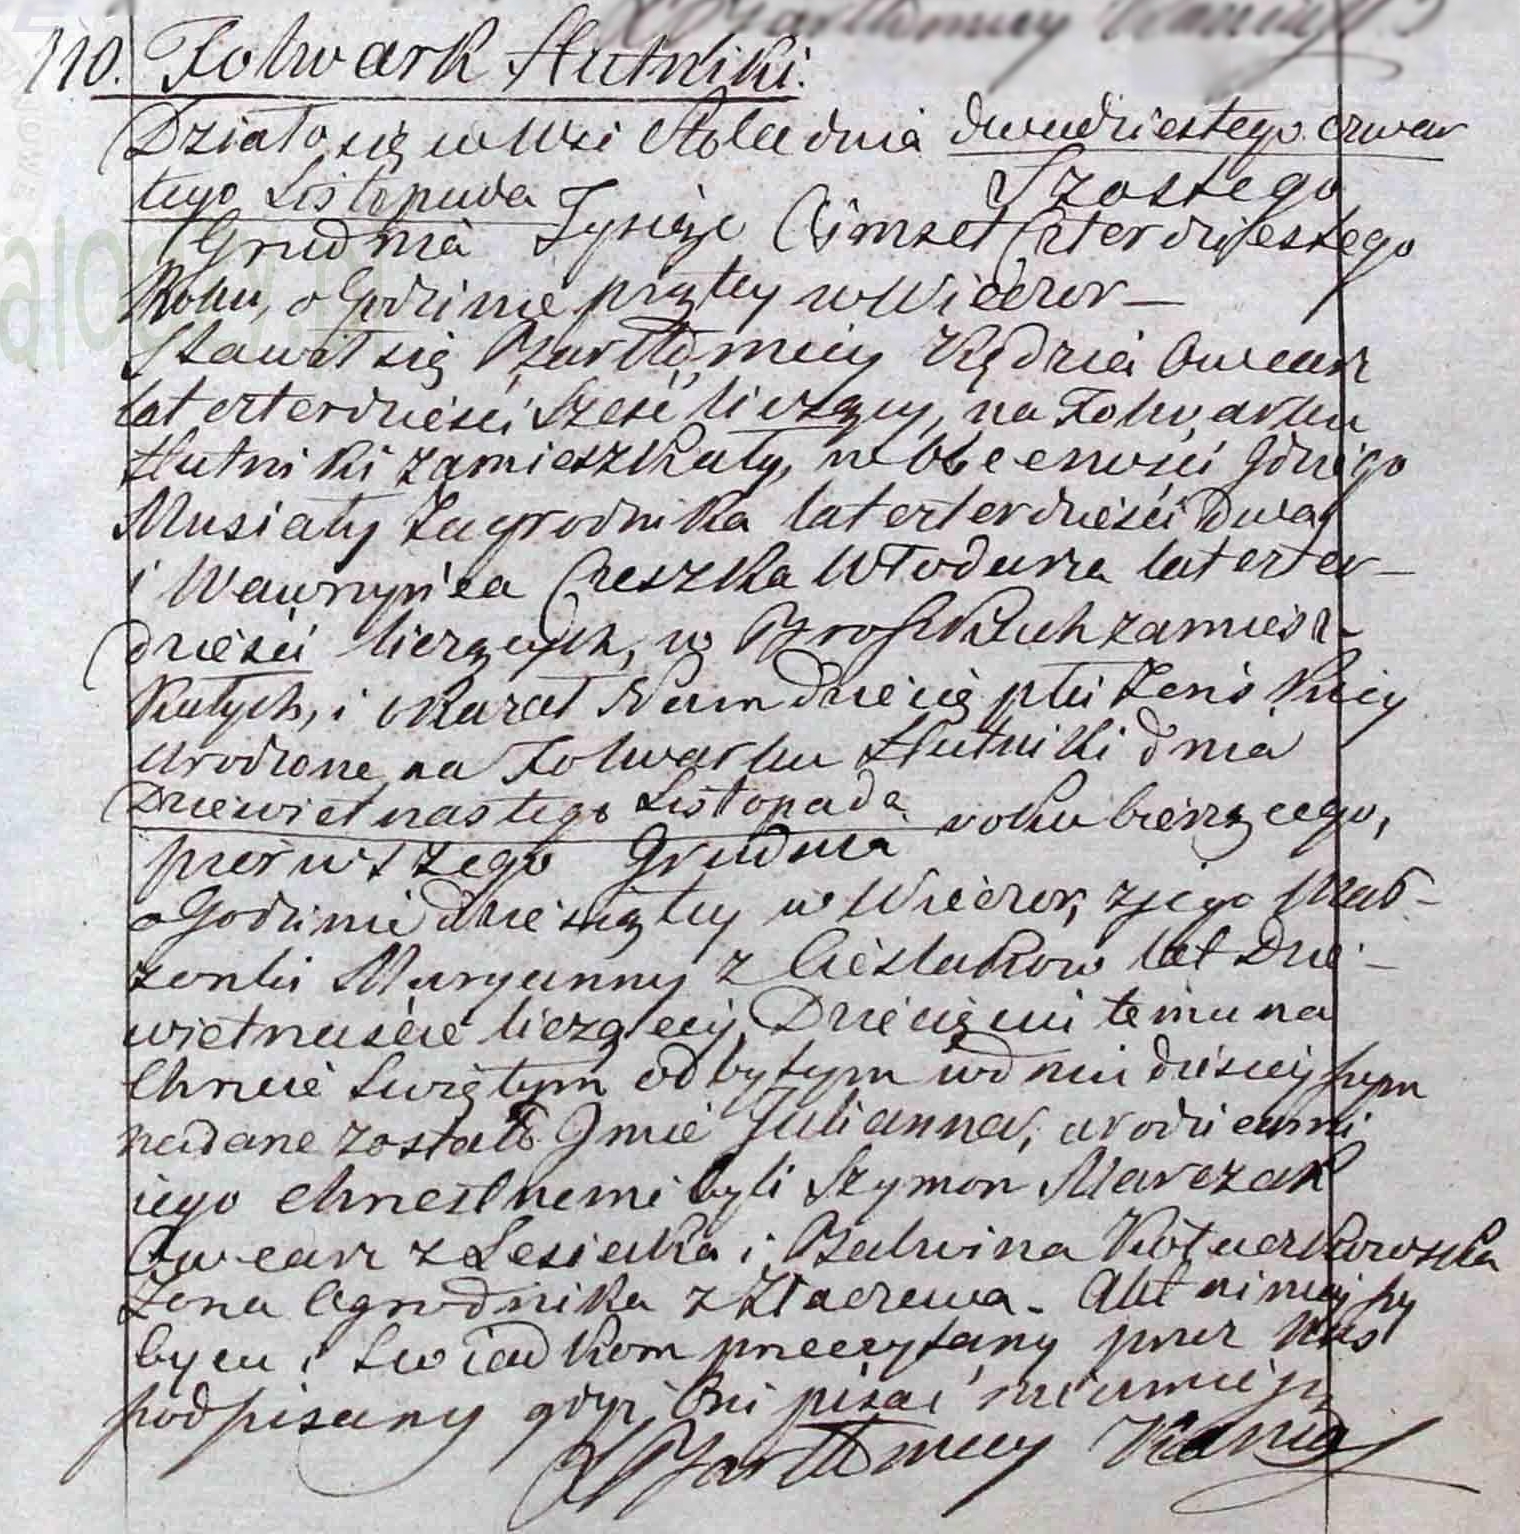 110. Folwark Hutniki.
Działo się w Wsi Stolec dnia dwudziestego czwar
tego Listopada
Szostego
Grudnia Tysiąc Ośmset Czterdziestego
Roku, o Godzinie piątey w Wieczor —
Stawił się Bartłomiey Kędzia Owczarz
lat czterdzieści sześć liczący, na Folwarku
Hutniki zamieszkały, w obecności Idziego
Musiały Zagrodnika lat czterdzieści dwa
i Wawrzyńca Cieszka Włodarza lat czter-
dzieści liczących, w Broszkach zamiesz-
kałych, i okazał Nam dziecię płci Żeńskiey
urodzone na Folwarku Hutniki dnia
Dziewietnastego Listopada roku bieżącego,
pierwszego Grudnia
o Godzinie dziesiątey w Wieczor, z jego Małż-
żonki Maryanny z Cieślakow lat Dzie-
wietnaście liczącey, Dziecięciu temu na
Chrzcie Świętym odbytym w dniu dzisieyszym
nadane zostało Imie Julianna, a rodzicami
iego chrzestnemi byli Szymon Marczak
Owczarz z Lesiaka i Balwina
Żona Ogrodnika z Złoczewa. Akt ninieyszy
oycu i Świadkom przeczytany przez Nas
podpisany gdyż Oni pisać nieumieją
X Bartłomiey Kania